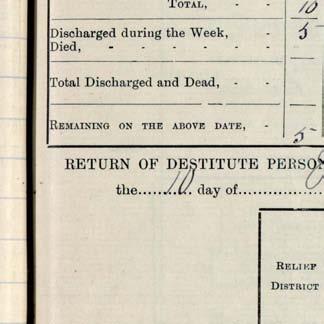 TOTAL, - - 10
Discharged during the Week, - 5
Died, - - - - -
Total Discharged and Dead, - -
REMAINING ON THE ABOVE DATE, - 5
RETURN OF DESTITUTE PERSO
the..........10 day of................
RELIEF
DISTRICT